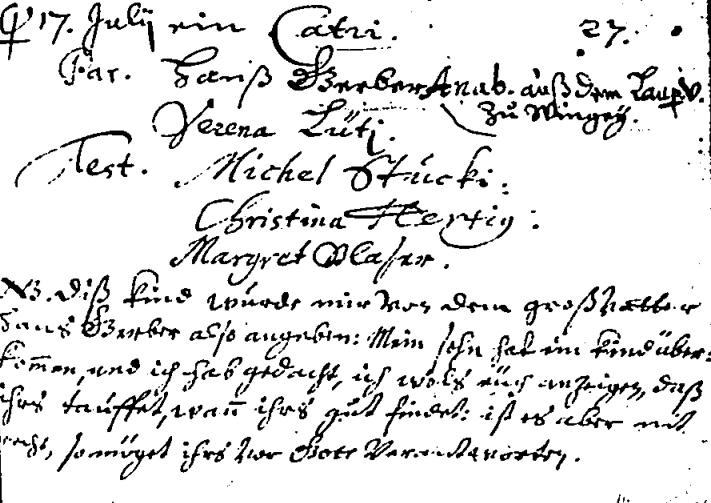 17. Julij ein Catri. 27.
Par. Hanß Gerber Anab. auß dem Laup.V.
zu Wingey.
Verena Lüti.
Test. Michel Stucki:
Christina Hertig:
Margret Blaser.
NB. diß kind wurde mir von dem großvatter
Hans Gerber also angeben: Mein sohn hat ein kind über:
kommen, und ich hab gedacht, ich wöls eüch anzeigen, daß
ihrs tauffet, wann ihrs gut findet: ist es aber nit
recht, so möget ihrs vor Gott verantworten.